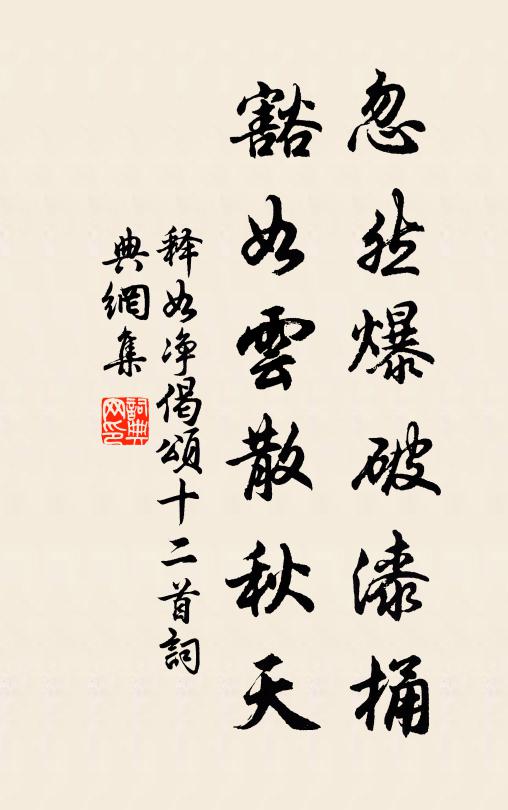 忽然爆破漆桶
豁如雲散秋天
释如净偈頌十二首詞
典網集
詞典網印